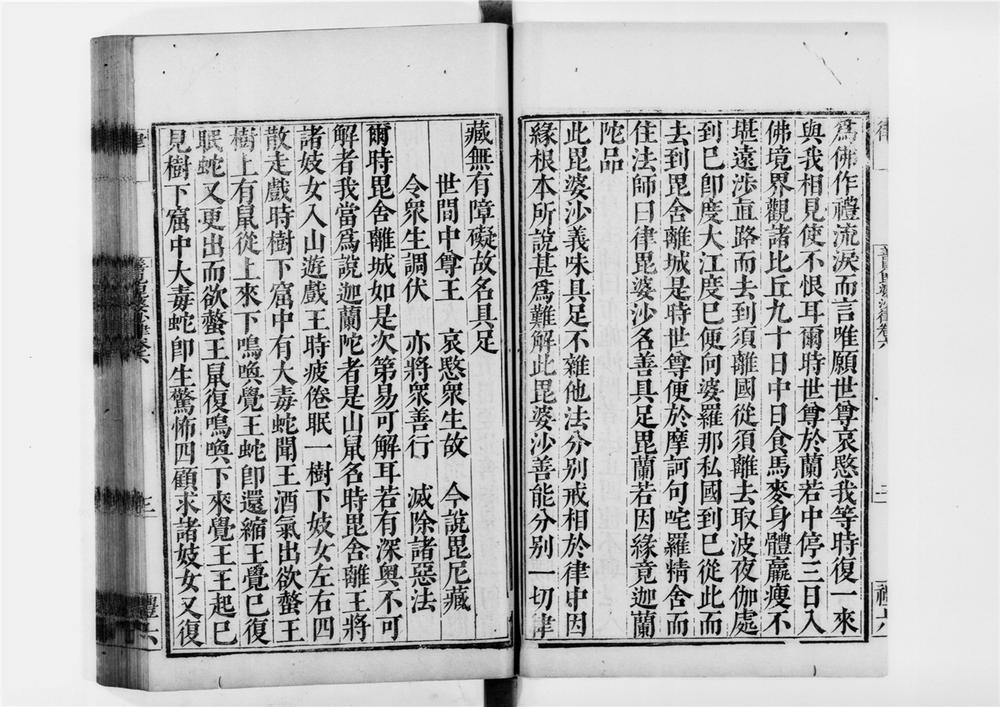 爲佛作禮流淚而言唯願世尊哀愍我等時復一來
與我相見使不恨耳爾時世尊於蘭若中停三日入
佛境界觀諸比丘九十日中日食馬麥身體羸瘦不
堪遠涉直路而去到須離國從須離去取波夜伽處
到已卽度大江度已便向婆羅那私國到已從此而
去到毘舍離城是時世尊便於摩訶句咤羅精舍而
住法師曰律毘婆沙名善具足毘蘭若因緣竟迦蘭
陀品
此毘婆沙義味具足不雜他法分別戒相於律中因
緣根本所說甚爲難解此毘婆沙善能分別一切律
藏無有障礙故名具足
世間中尊王　哀愍衆生故　今說毘尼藏
令衆生調伏　亦將衆善行　滅除諸惡法
爾時毘舍離城如是次第易可解耳若有深奧不可
解者我當爲說迦蘭陀者是山鼠名時毘舍離王將
諸妓女入山遊戲王時疲倦眠一樹下妓女左右四
散走戲時樹下窟中有大毒蛇聞王酒氣出欲螫王
樹上有鼠從上來下鳴喚覺王蛇卽還縮王覺已復
眠蛇又更出而欲螫王鼠復鳴喚下來覺王王起已
見樹下窟中大毒蛇卽生驚怖四顧求諸妓女又復